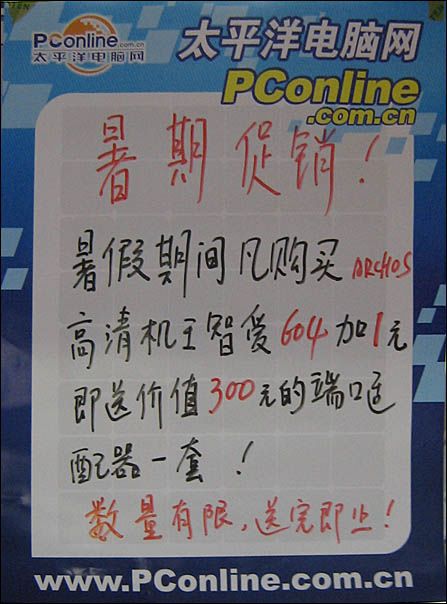 PConline.com.cn
太平洋电脑网
太平洋电脑网
PConline
.com.cn
暑期促销！
暑假期间凡购买ARCHOS
高清机王智爱604加1元
即送价值300元的端口适
配器一套！
数量有限，送完即止！
www.PConline.com.cn